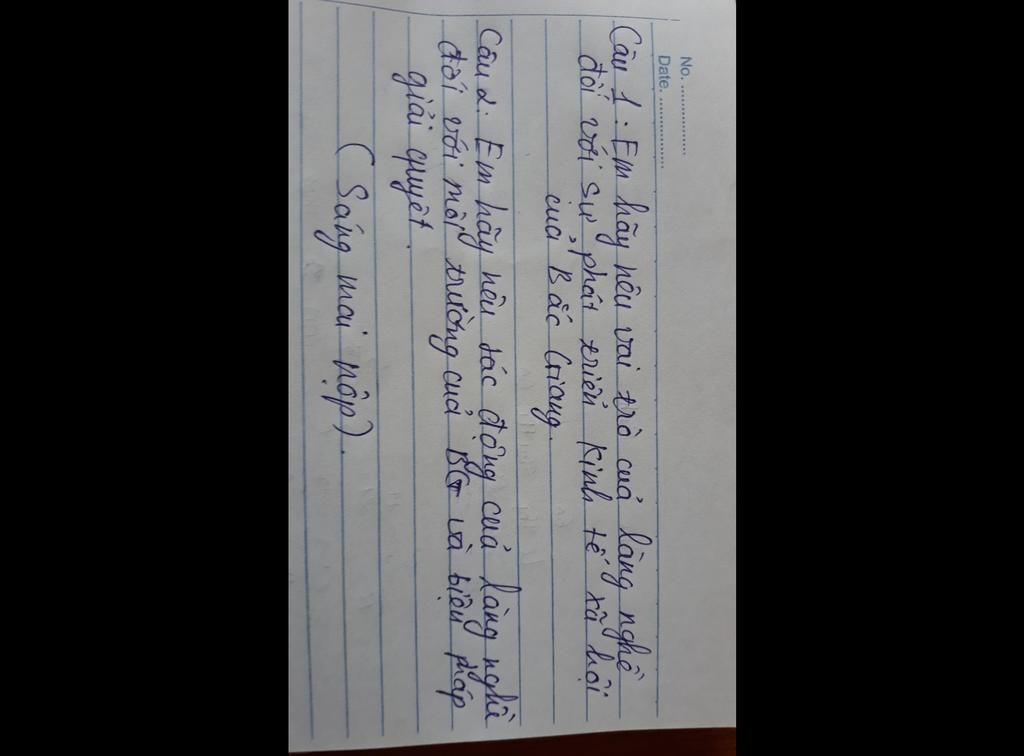 No. ................
Date. ................
Câu 1. Em hãy nêu vai trò của làng nghề
đối với sự phát triển kinh tế xã hội
của Bắc Giang.
Câu 2: Em hãy nêu tác động của làng nghề
đối với môi trường của BG và biện pháp
giải quyết.
( Sáng mai nộp).